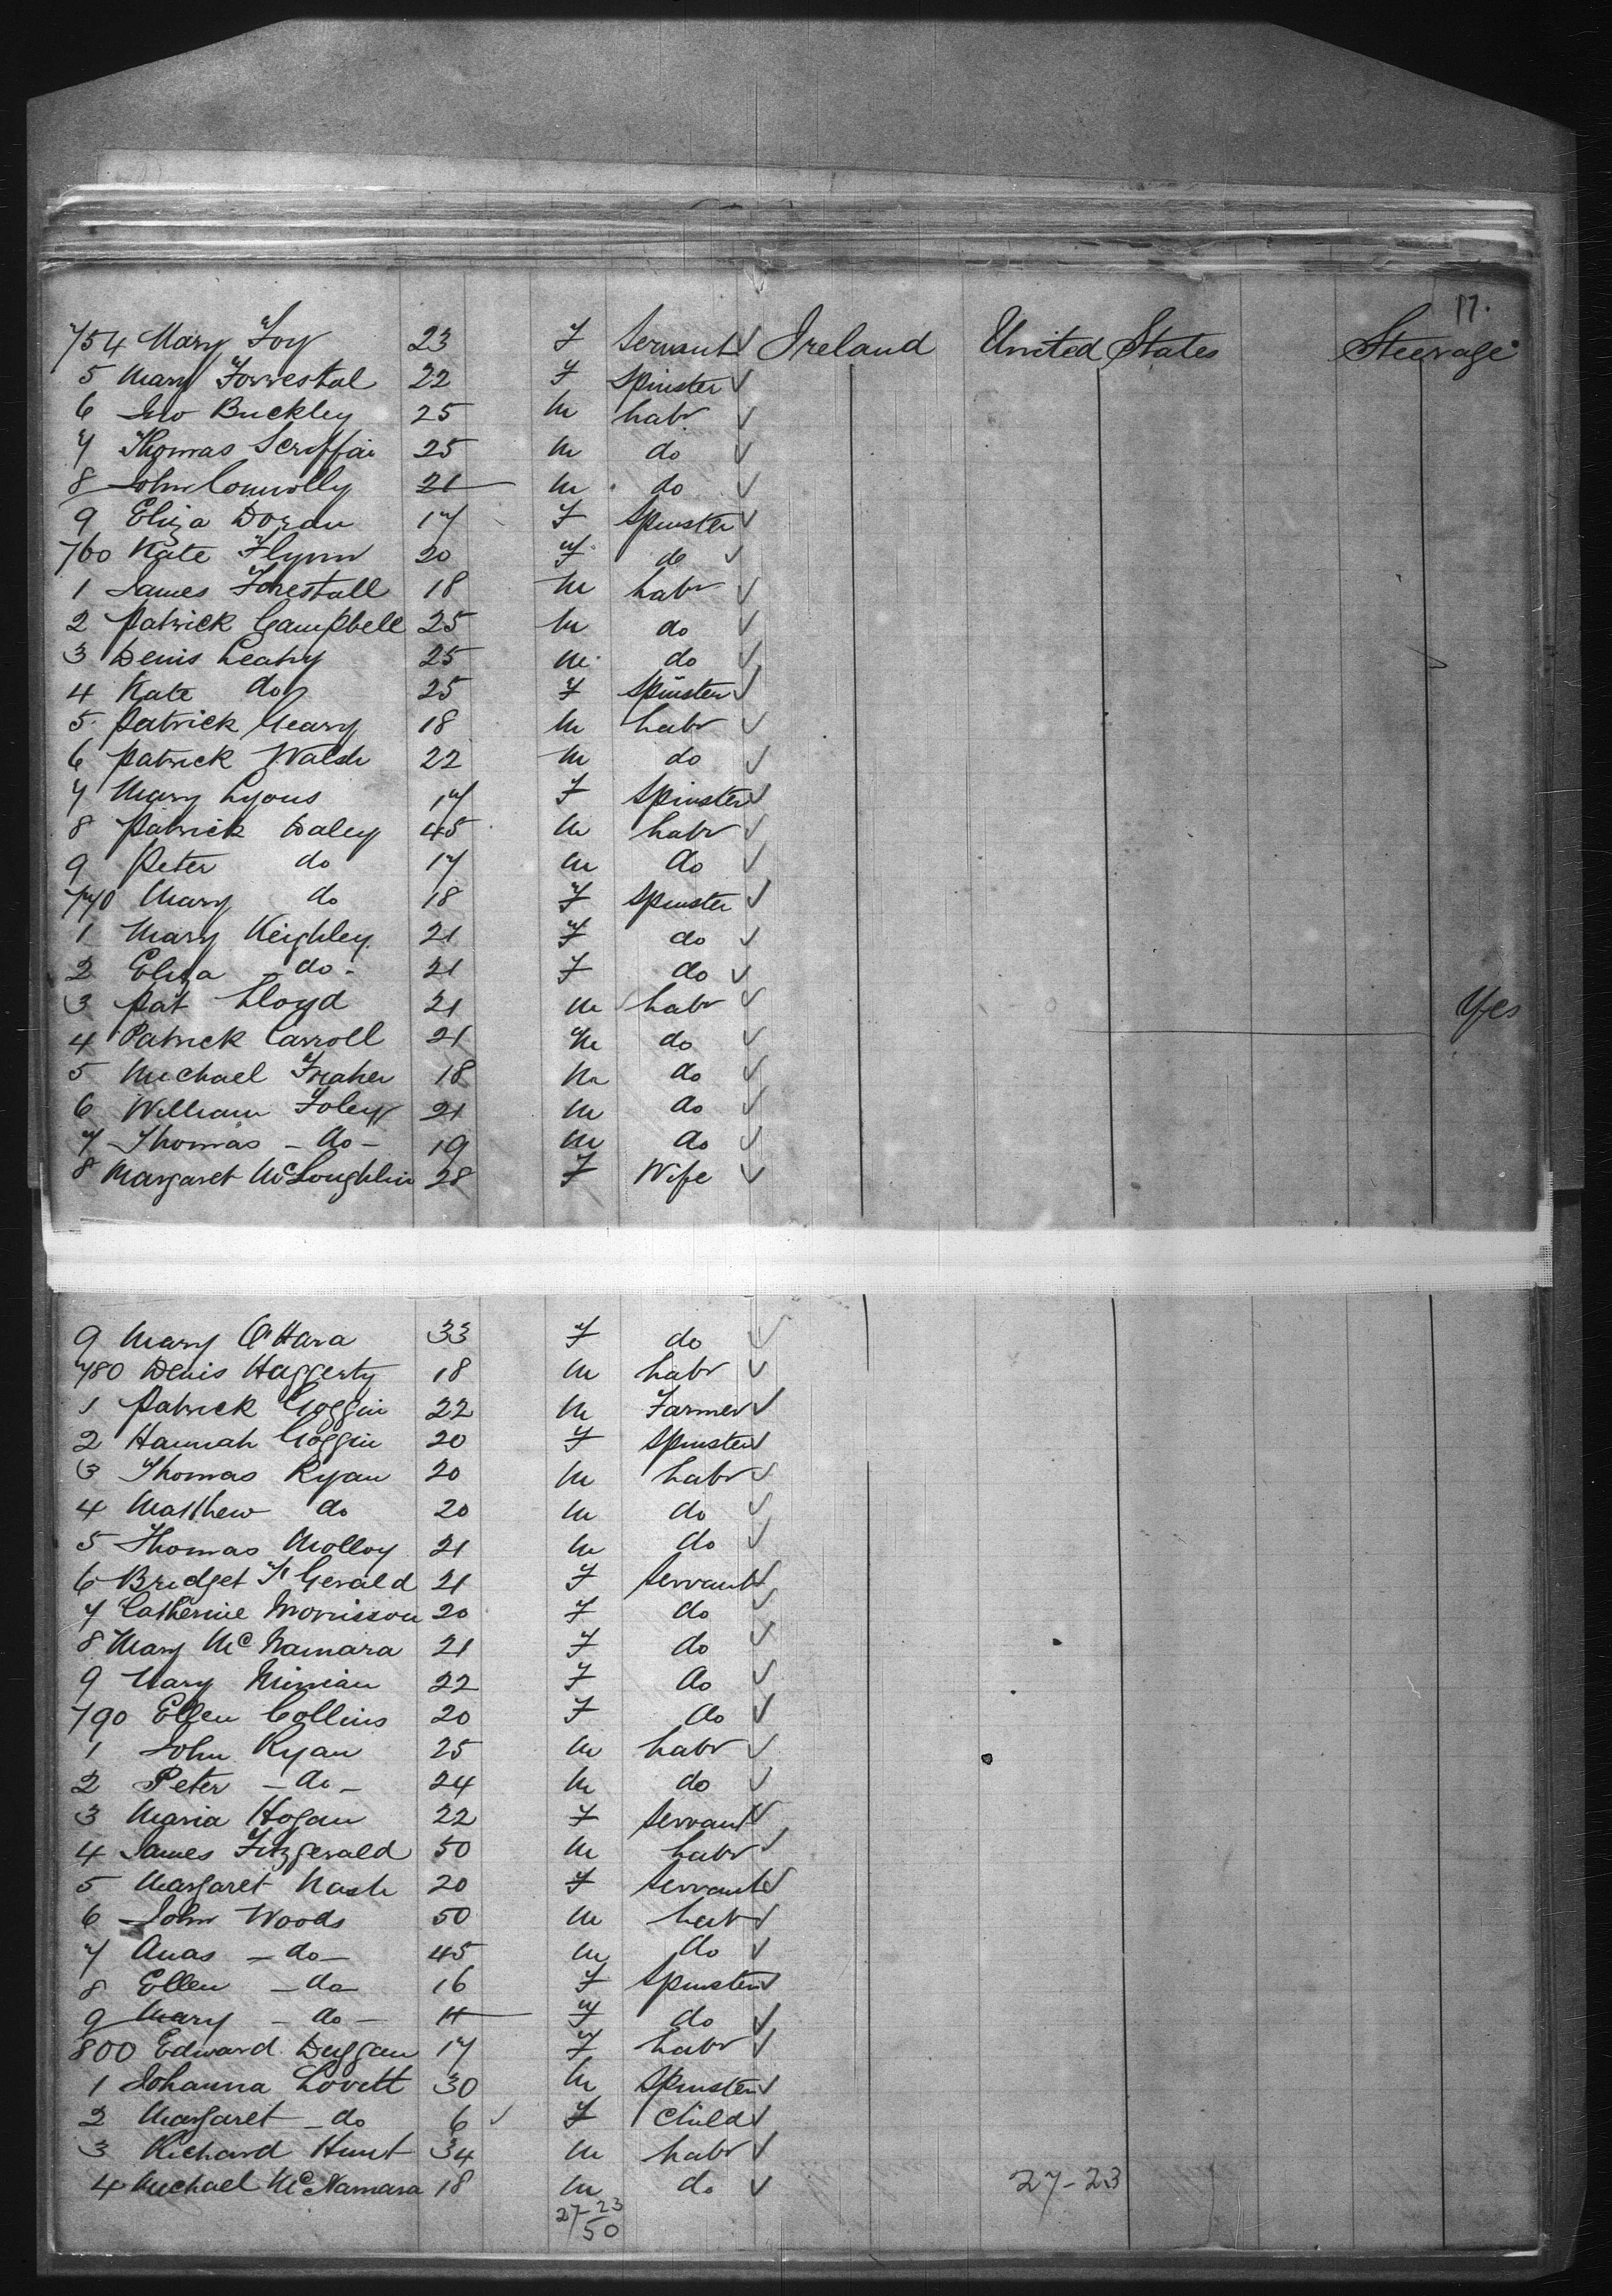 17.
754 Mary Foy 23 F Servant Ireland United States Steerage
5 Mary Forrestal 22 F Spinster
6 Jno Buckley 25 M Labr
7 Thomas 25 M do
8 John Connolly 21 M do
9 Eliza Doran 17 F Spinster
760 Kate Flynn 20 F do
1 James Forestall 18 M Labr
2 Patrick Campbell 25 M do
3 Denis Leahy 25 M do
4 Kate do 25 F Spinster
5 Patrick Geary 18 M Labr
6 Patrick Walsh 22 M do
7 Mary Lyons 17 F Spinster
8 Patrick Daley 45 M Labr
9 Peter do 17 M do
770 Mary do 18 F Spinster
1 Mary Keighley 21 F do
2 Eliza - do - 21 F do
3 Pat Lloyd 21 M Labr Yes
4 Patrick Carroll 21 M do
5 Michael Fraher 18 M do
6 William Foley 21 M do
7 Thomas - do - 19 M do
8 Margaret McLoughlin 28 F Wife
9 Mary O'Hara 33 F do
780 Denis Haggerty 18 M Labr
1 Patrick Goggin 22 M Farmer
2 Hannah Goggin 20 F Spinster
3 Thomas Ryan 20 M Labr
4 Matthew do 20 M do
5 Thomas Molloy 21 M do
6 Bridget Ft Gerald 21 F Servant
7 Catherine Morrisson 20 F do
8 Mary McNamara 21 F do
9 Mary 22 F do
790 Ellen Collins 20 F do
1 John Ryan 25 M Labr
2 Peter - do - 24 M do
3 Maria Hogan 22 F Servant
4 James Fitzgerald 50 M Labr
5 Margaret Nash 20 F Servant
6 John Woods 50 M Labr
7 Anas - do - 45 M do
8 Ellen - do 16 F Spinster
9 Mary - do - 11 F do
800 Edward Duggan 17 F Labr
1 Johanna Lovett 30 M Spinster
2 Margaret - do 6 F Child
3 Richard Hunt 34 M Labr
4 Michael McNamara 18 M do 27-23
27-23
50